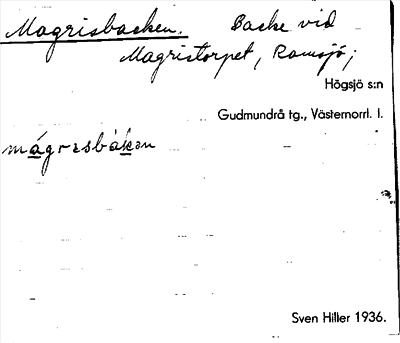 Magrisbacken. Backe vid
Magristorpet, Ramsjö;
Högsjö s:n
Gudmundrå tg., Västernorrl. l.
Sven Hiller 1936.